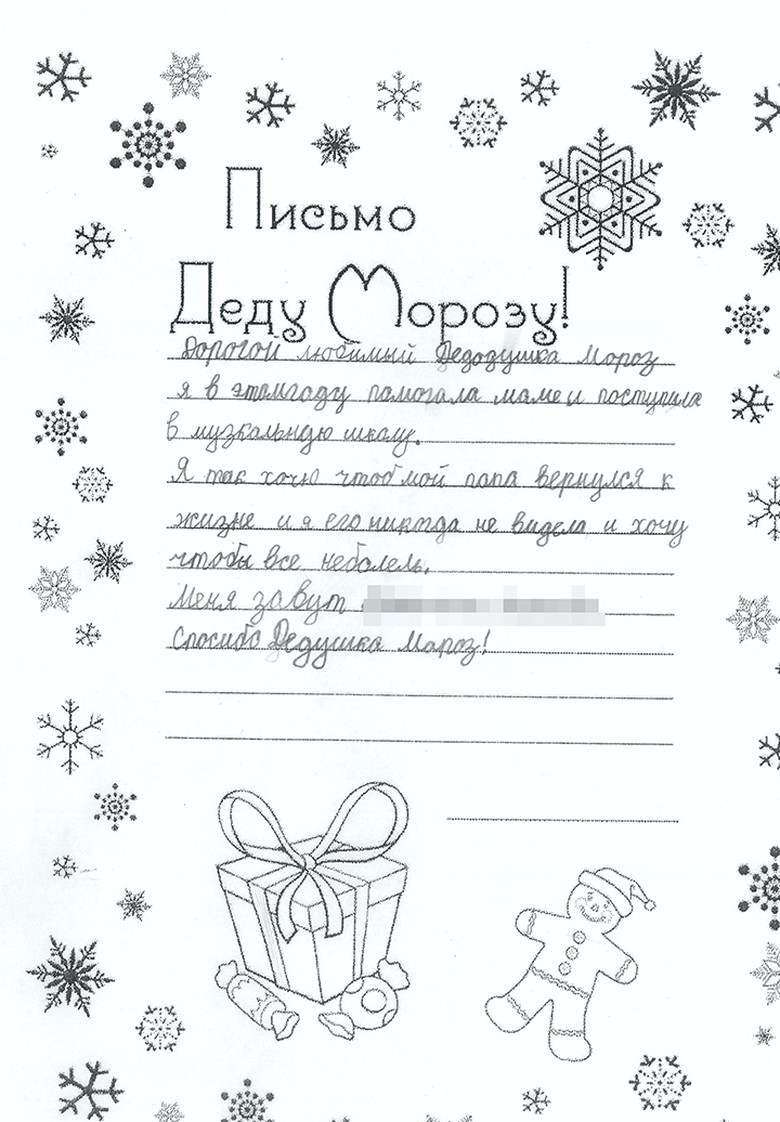 Письмо
Деду Морозу!
Дорогой любимый Дедодушка Мороз
я в этомгоду памогала маме и поступила
в музкальную школу.
Я так хочю чтоб мой папа вернулся к
жизне и я его никогда не видела и хочу
чтобы все неболель.
Меня завут
Спосибо Дедушка Мароз!